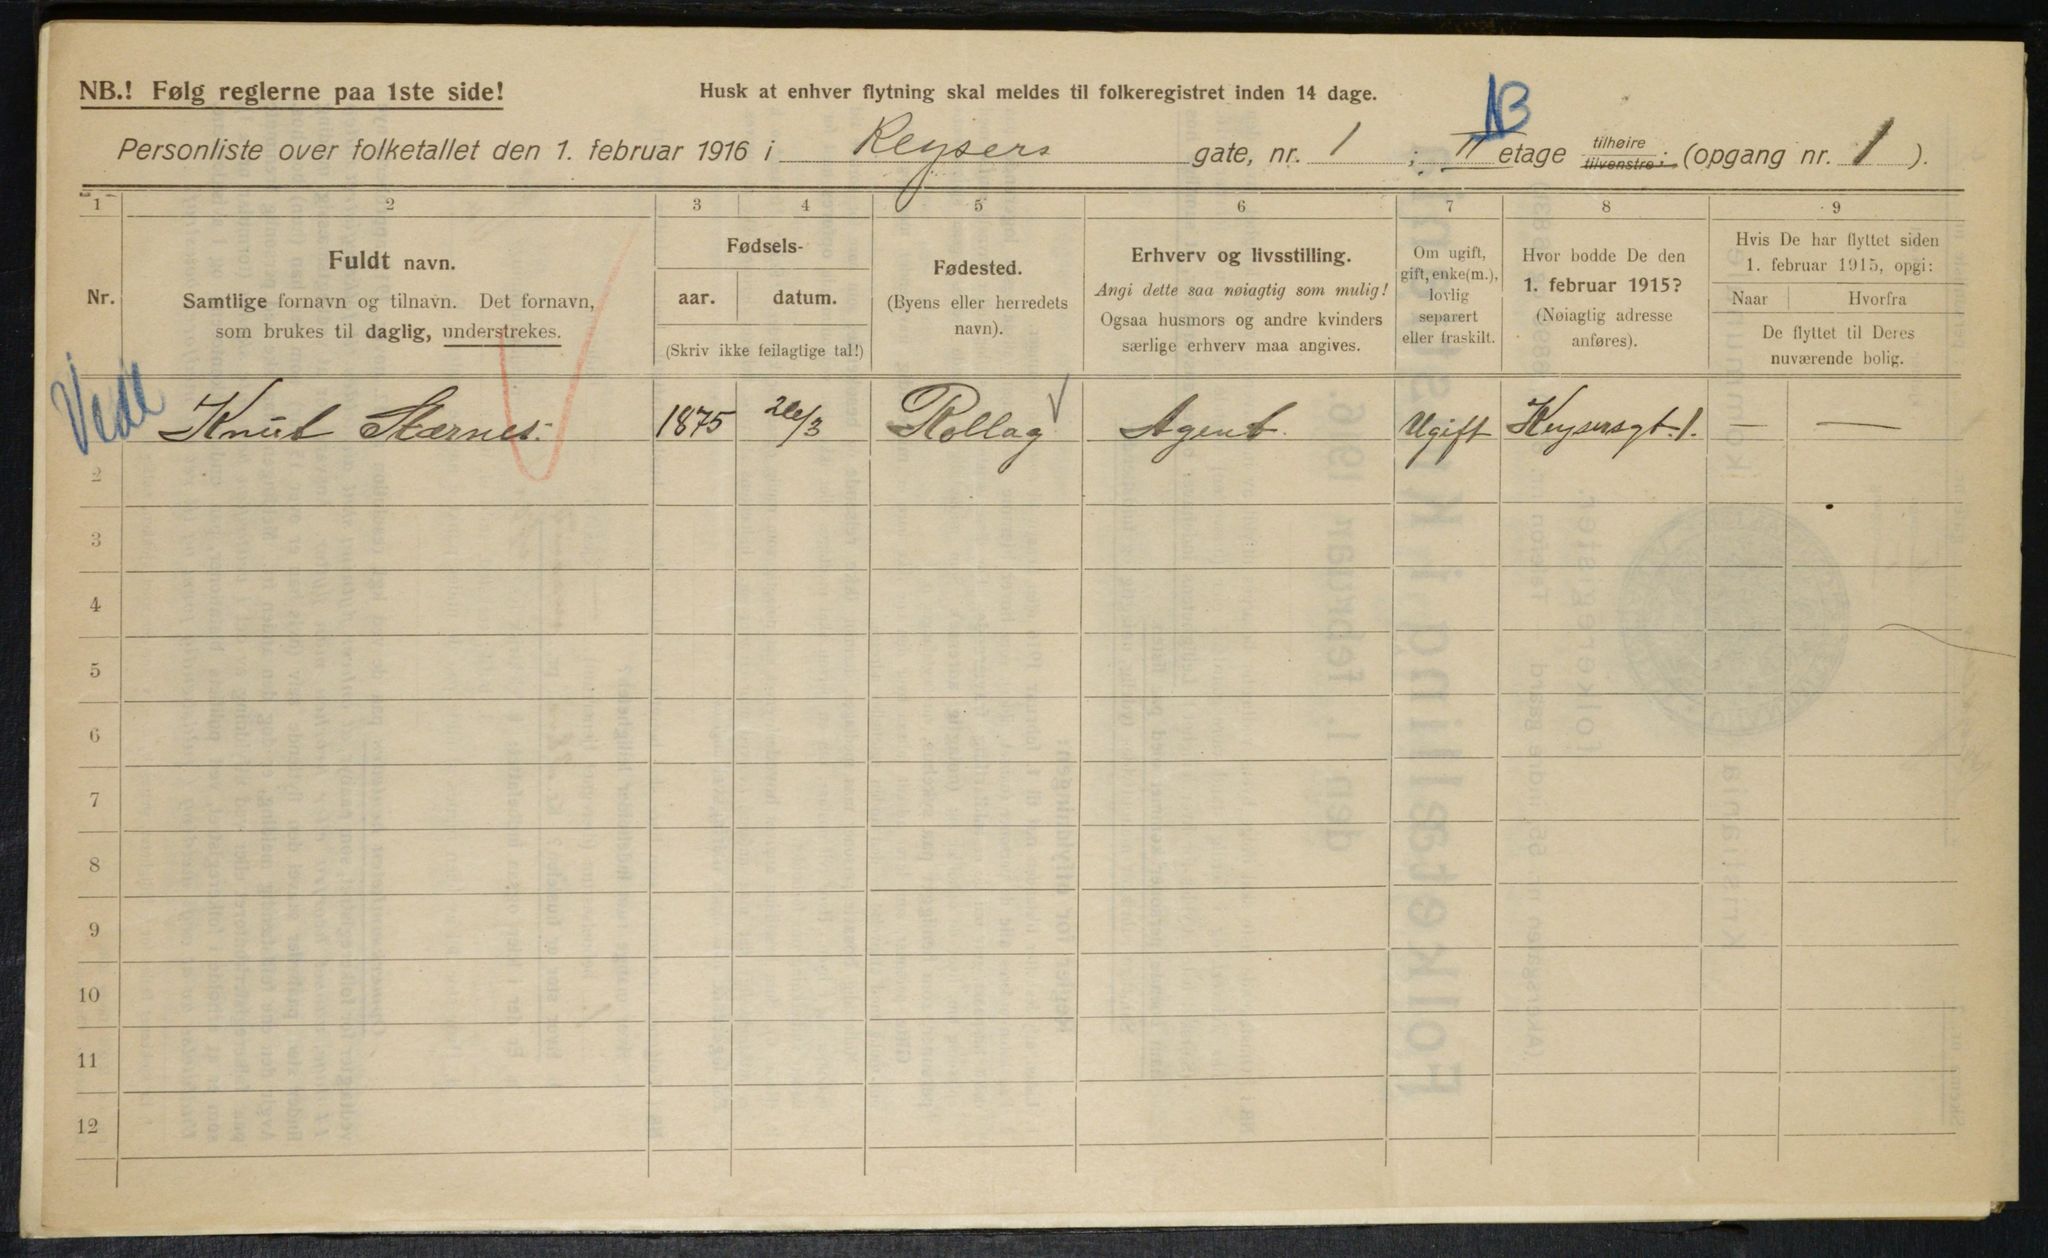 NB.! Følg reglerne paa 1ste side!
Husk at enhver flytning skal meldes til folkeregistret inden 14 dage.
B
Personliste over folketallet den 1. februar 1916 i Keysers gate, nr. 1 ; II etage tilhøire tilvenstre; (opgang nr. 1 ).
1 2 3 4 5 6 7 8 9
Nr.
Fuldt navn.
Samtlige fornavn og tilnavn. Det fornavn,
som brukes til daglig, understrekes.
Fødsels-
aar. datum.
(Skriv ikke feilagtige tal!)
Fødested.
(Byens eller herredets
navn).
Erhverv og livsstilling.
Angi dette saa nøiagtig som mulig!
Ogsaa husmors og andre kvinders
særlige erhverv maa angives.
Om ugift,
gift, enke(m.),
lovlig
separert
eller fraskilt.
Hvor bodde De den
1. februar 1915?
(Nøiagtig adresse
anføres).
Hvis De har flyttet siden
1. februar 1915, opgi:
Naar Hvorfra
De flyttet til Deres
nuværende bolig.
Knut Stærnes. 1875 26/3 Rollag Agent. Ugift Keysersgt. 1. — —
2
3
4
5
6
7
8
9
10
11
12